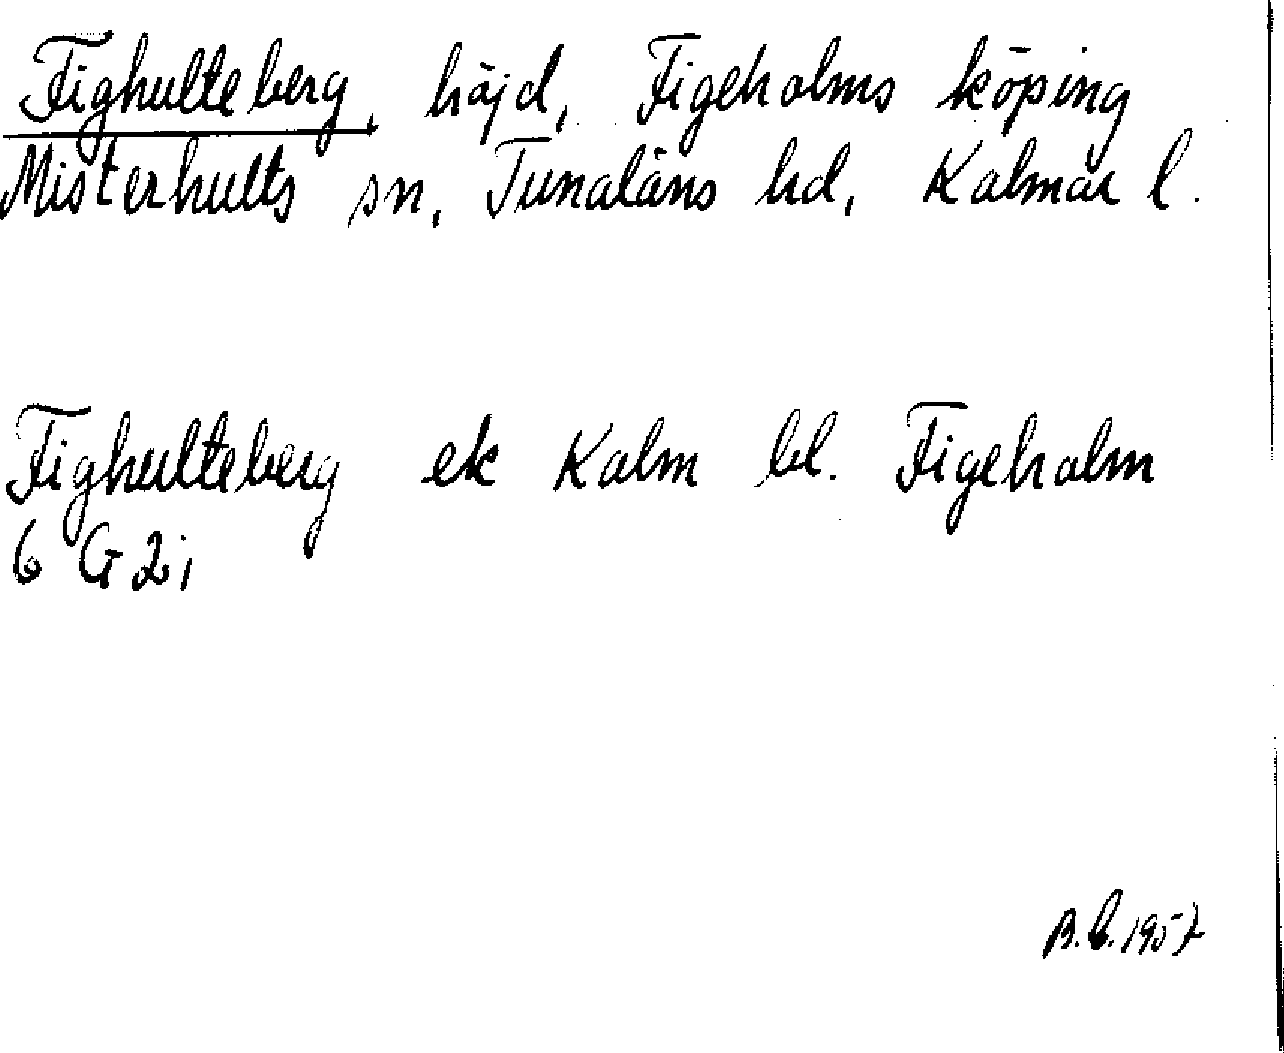 Fighulteberg, höjd, Figeholms köping
Misterhults sn, Tunaläns hd, Kalmar l.
Fighulteberg ek Kalm bl. Figeholm
6 G 2 i
B.C. 1957